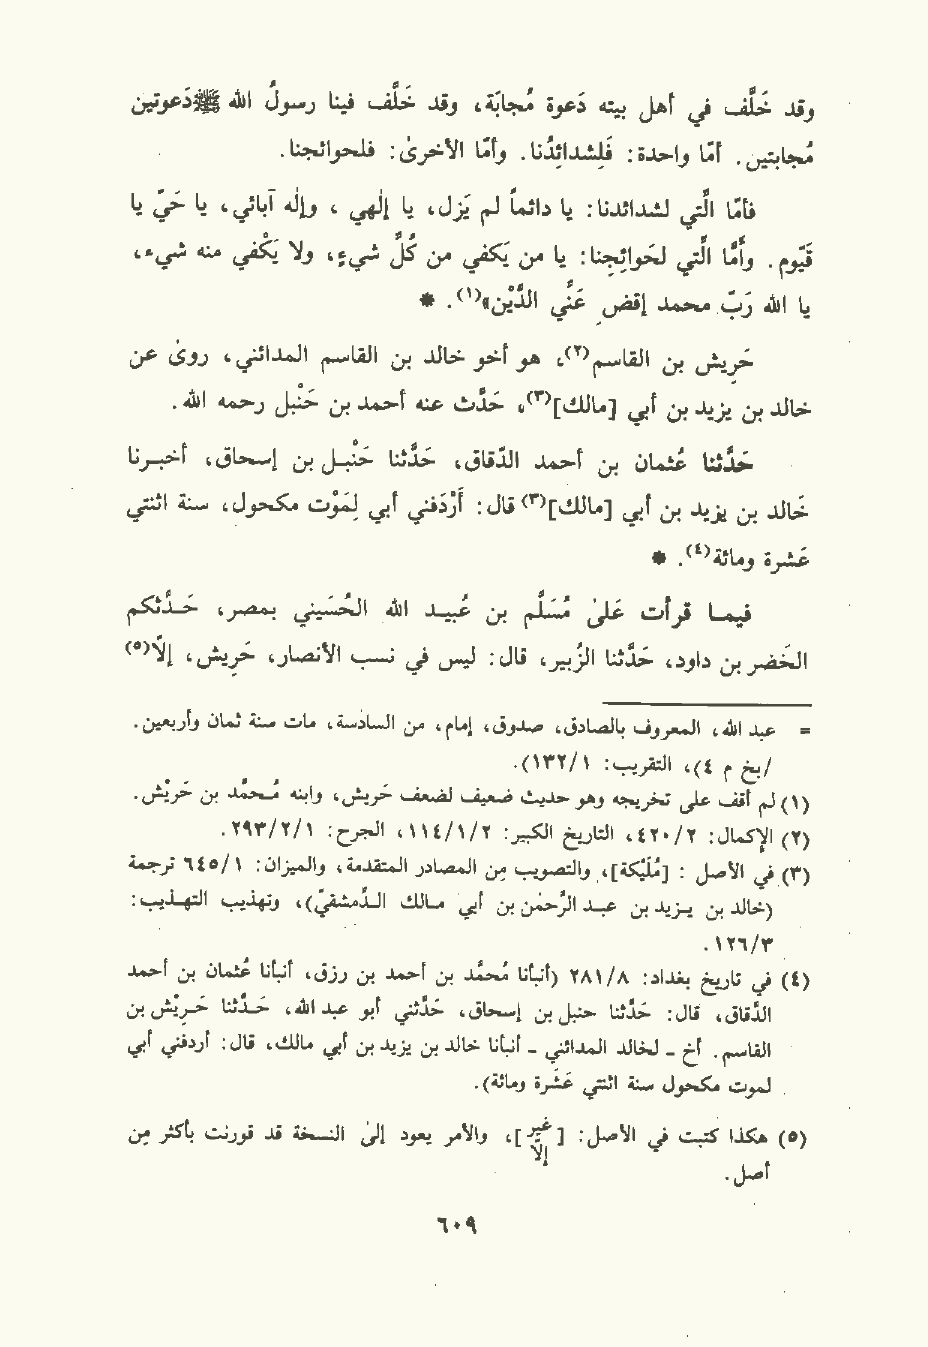 وقد خَلَّف في أهل بيته دَعوة مُجابَة، وقد خَلَّف فينا رسولُ الله ﷺ دَعوتين
مُجابتين. أمّا واحدة: فَلِشدائِدُنا. وأمّا الأخرىٰ: فلحوائجنا.
فأمّا الَّتي لشدائدنا: يا دائماً لم يَزل، يا إلٰهي، وإلٰه آبائي، يا حَيّ يا
قَيّوم. وأمَّا الَّتي لحَوائِجِنا: يا من يَكفي من كُلِّ شيءٍ، ولا يَكْفي منه شيء،
يا الله رَبّ محمد إقضِ عَنِّي الدَّيْن»(١). *
حَرِيش بن القاسم(٢)، هو أخو خالد بن القاسم المدائني، روىٰ عن
خالد بن يزيد بن أبي [مالك](٣)، حَدَّث عنه أحمد بن حَنْبل رحمه الله.
حَدَّثنا عُثمان بن أحمد الدّقاق، حَدَّثنا حَنْبل بن إسحاق، أخبرنا
خَالد بن يزيد بن أبي [مالك](٣) قال: أَرْدَفني أبي لِمَوْت مكحول، سنة اثنتي
عَشرة ومائة(٤). *
فيما قرأت عَلىٰ مُسَلَّم بن عُبيد الله الحُسَيني بمصر، حَدَّثكم
الخَضر بن داود، حَدَّثنا الزُبير، قال: ليس في نسب الأنصار، حَرِيش، إلّا(٥)
= عبد الله، المعروف بالصادق، صدوق، إمام، من السادسة، مات سنة ثمان وأربعين.
/بخ م ٤)، التقريب: ١٣٢/١).
(١) لم أقف على تخريجه وهو حديث ضعيف لضعف حَريْش، وابنه مُحمَّد بن حَريْش.
(٢) الإكمال: ٤٢٠/٢، التاريخ الكبير: ١١٤/١/٢، الجرح: ٢٩٣/٢/١.
(٣) في الأصل: [مُلَيْكة]، والتصويب مِن المصادر المتقدمة، والميزان: ٦٤٥/١ ترجمة
(خالد بن يزيد بن عبد الرَّحمٰن بن أبي مالك الدِّمشقيّ)، وتهذيب التهذيب:
١٢٦/٣.
(٤) في تاريخ بغداد: ٢٨١/٨ (أنبأنا مُحمَّد بن أحمد بن رزق، أنبأنا عُثمان بن أحمد
الدَّقاق، قال: حَدَّثنا حنبل بن إسحاق، حَدَّثني أبو عبد الله، حَدَّثنا حَرِيْش بن
القاسم. أخ - لخالد المدائني - أنبأنا خالد بن يزيد بن أبي مالك، قال: أردفني أبي
لموت مكحول سنة اثنتي عَشَرة ومائة).
(٥) هكذا كتبت في الأصل: [ غير إلّا ]، والأمر يعود إلىٰ النسخة قد قورنت بأكثر مِن
أصل.
٦٠٩